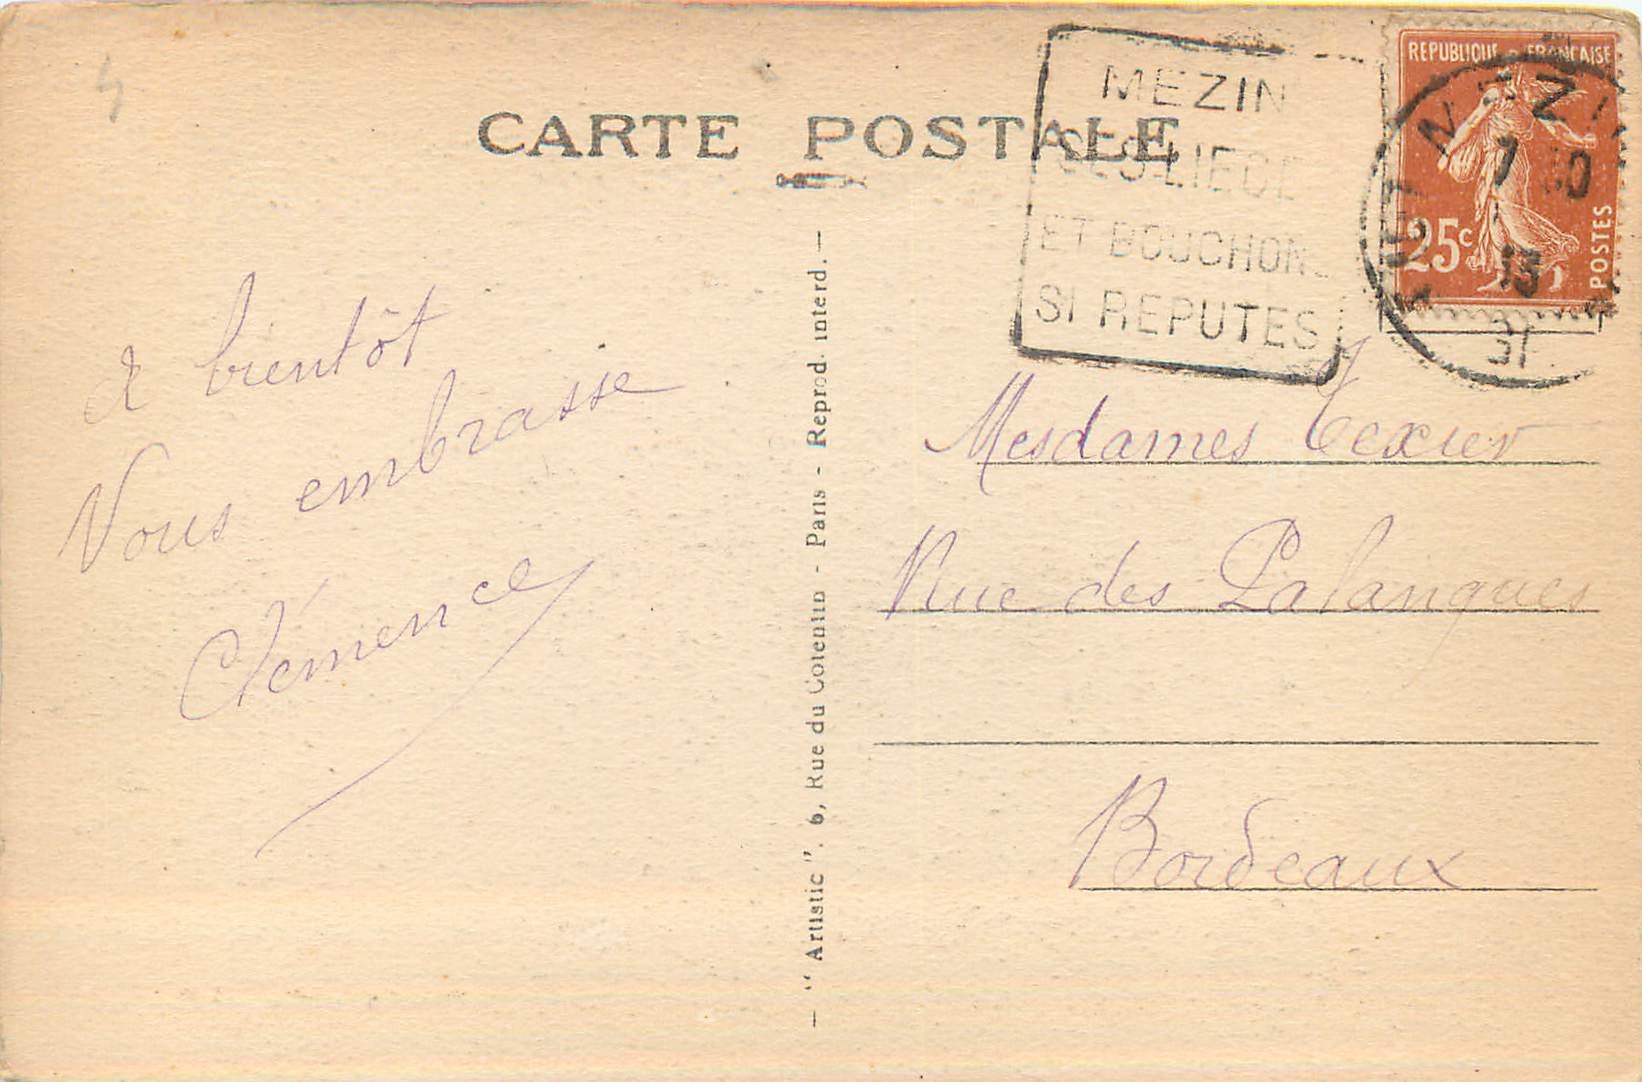 CARTE POSTALE
MEZIN
SES LIEGE
ET BOUCHONS
SI REPUTES
REPUBLIQUE FRANCAISE
25c
POSTES
MEZIN
LOT
31
à bientôt
Vous embrasse
Clémence
— "Artistic". 6, Rue du Cotentin - Paris - Reprod. interd. —
Mesdames Texier
Rue des Palanques
Bordeaux